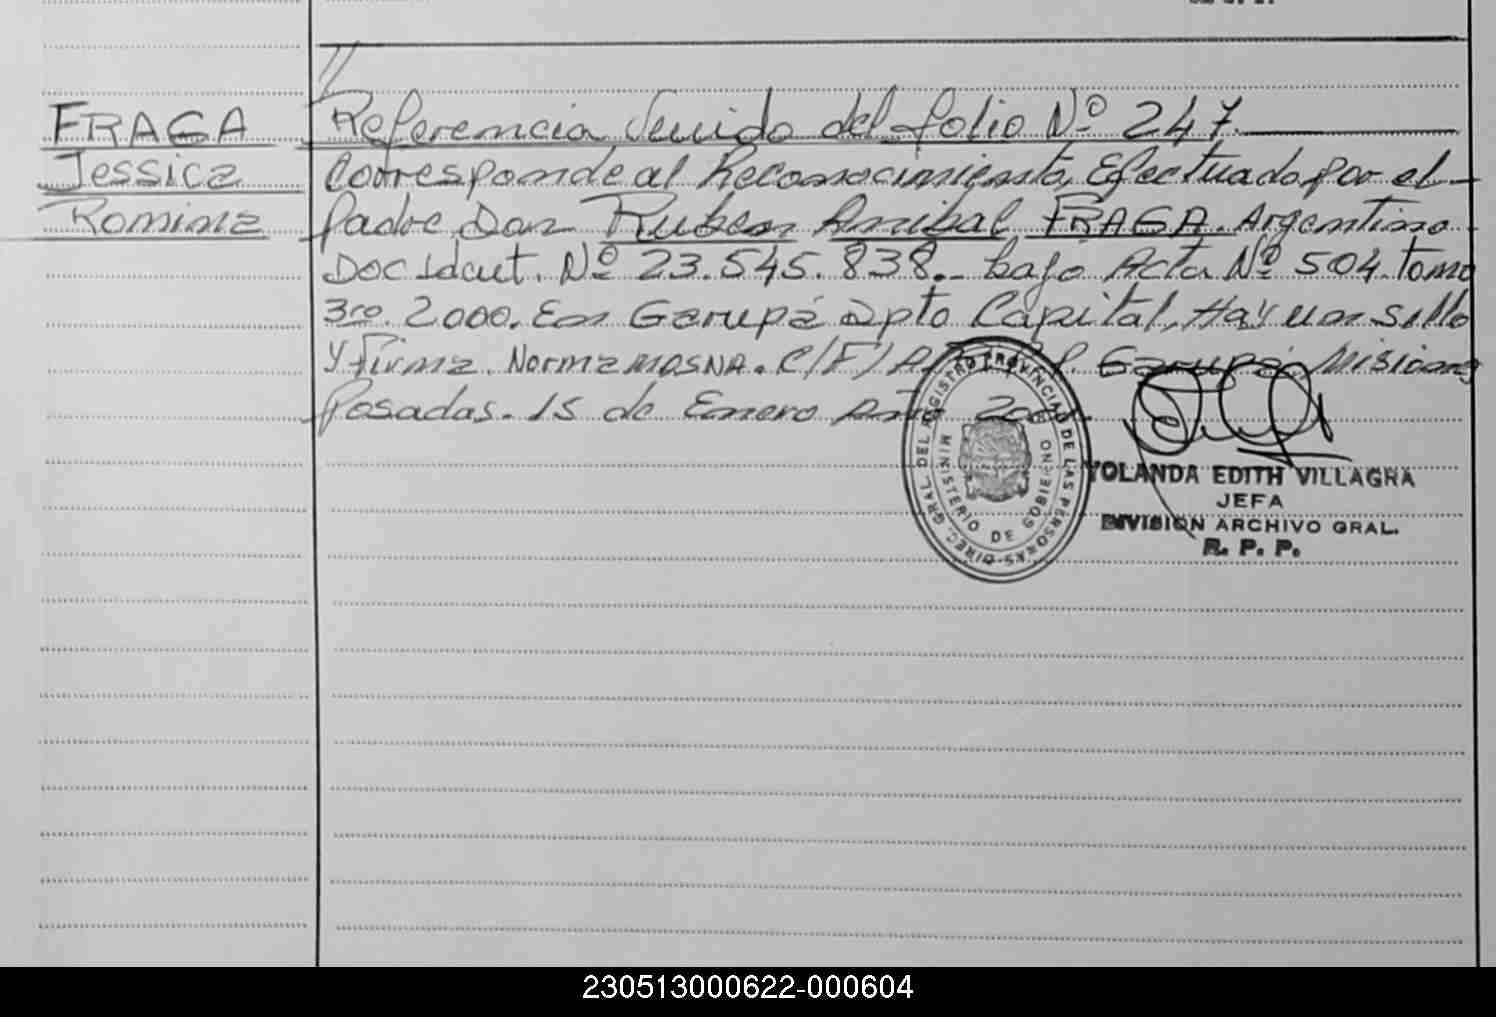 //
FRAGA
Jessica
Romina
Referencia Venido del folio Nº 247.
Corresponde al Reconocimiento, Efectuado por el
Padre Don Ruben Anibal FRAGA. Argentino.
Doc Ident. Nº 23.545.838._ bajo Acta Nº 504. tomo
3ro. 2000. En Garupá Dpto Capital, Hay un sello
y firma. Norma MOSNA. C/F/ Garupá. Misiones
Posadas. 15 de Enero Año
DIREC. GRAL. DEL REGISTRO PROVINCIAL DE LAS PERSONAS
MINISTERIO DE GOBIERNO
YOLANDA EDITH VILLAGRA
JEFA
DIVISION ARCHIVO GRAL.
R. P. P.
230513000622-000604